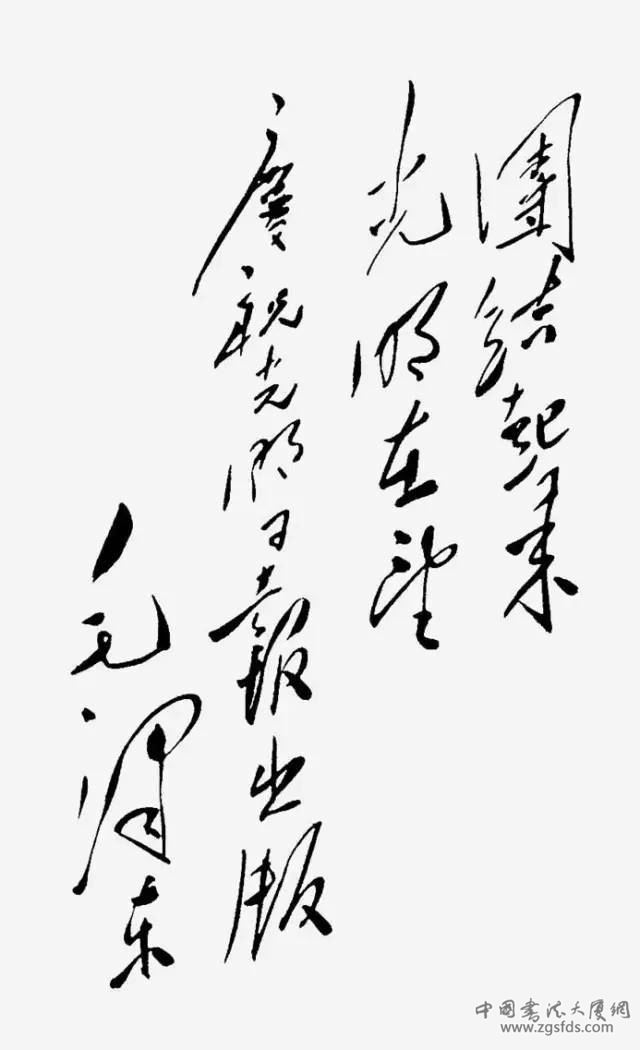 團結起來
光明在望
慶祝光明日報出版
毛澤东
中国书法大厦網
www.zgsfds.com